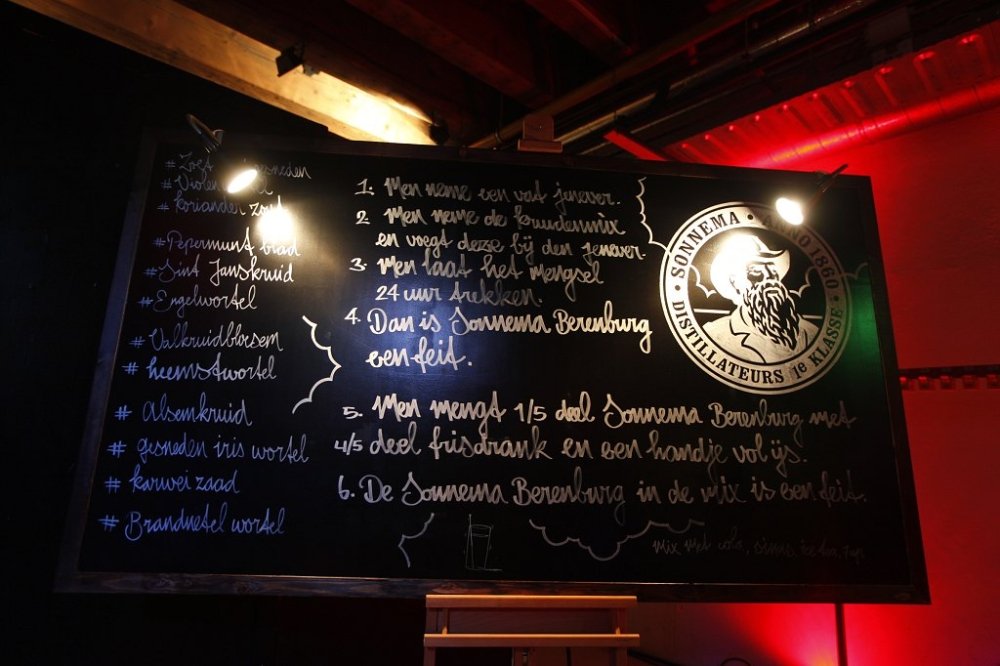 # Zoet gesneden
# Violen
# Koriander zaad
# Pepermunt blad
# Sint Janskruid
# Engelwortel
# Valkruidbloesem
# heemstwortel
# Alsemkruid
# gesneden iris wortel
# karwei zaad
# Brandnetel wortel
1. Men neme een vat jenever.
2. Men neme de kruidenmix
en voegt deze bij den jenever.
3. Men laat het mengsel
24 uur trekken.
4. Dan is Sonnema Berenburg
een feit.
5. Men mengt 1/5 deel Sonnema Berenburg met
4/5 deel frisdrank en een handje vol ijs.
6. De Sonnema Berenburg in de mix is een feit.
mix met cola, sinas, ice tea, 7up
SONNEMA • ANNO 1860 •
DISTILLATEURS 1e KLASSE